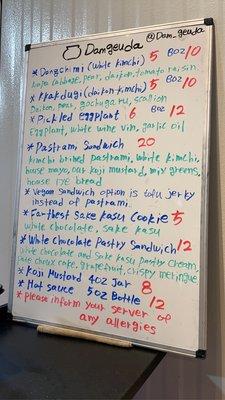 @Dam_geuda
Damgeuda
* Dongchimi (white kimchi) 5 8oz/10
napa cabbage, pear, daikon, tomato raisin
* Kkakdugi (daikon kimchi) 5 8oz/10
Daikon, pear, gochugaru, scallion
* Pickled eggplant 6 8oz 12
Eggplant, white wine vin, garlic oil
* Pastrami Sandwich 20
kimchi brined pastrami, white kimchi,
house mayo, our koji mustard, mix greens,
house rye bread
* Vegan Sandwich option is tofu jerky
instead of pastrami
* Earthest Sake kasu Cookie 5
white chocolate, sake kasu
* White Chocolate Pastry Sandwich 12
White chocolate and sake kasu pastry cream,
pate choux cake, grapefruit, crispy meringue
* Koji Mustard 4oz Jar 8
* Hot sauce 5oz Bottle 12
* please inform your server of
any allergies